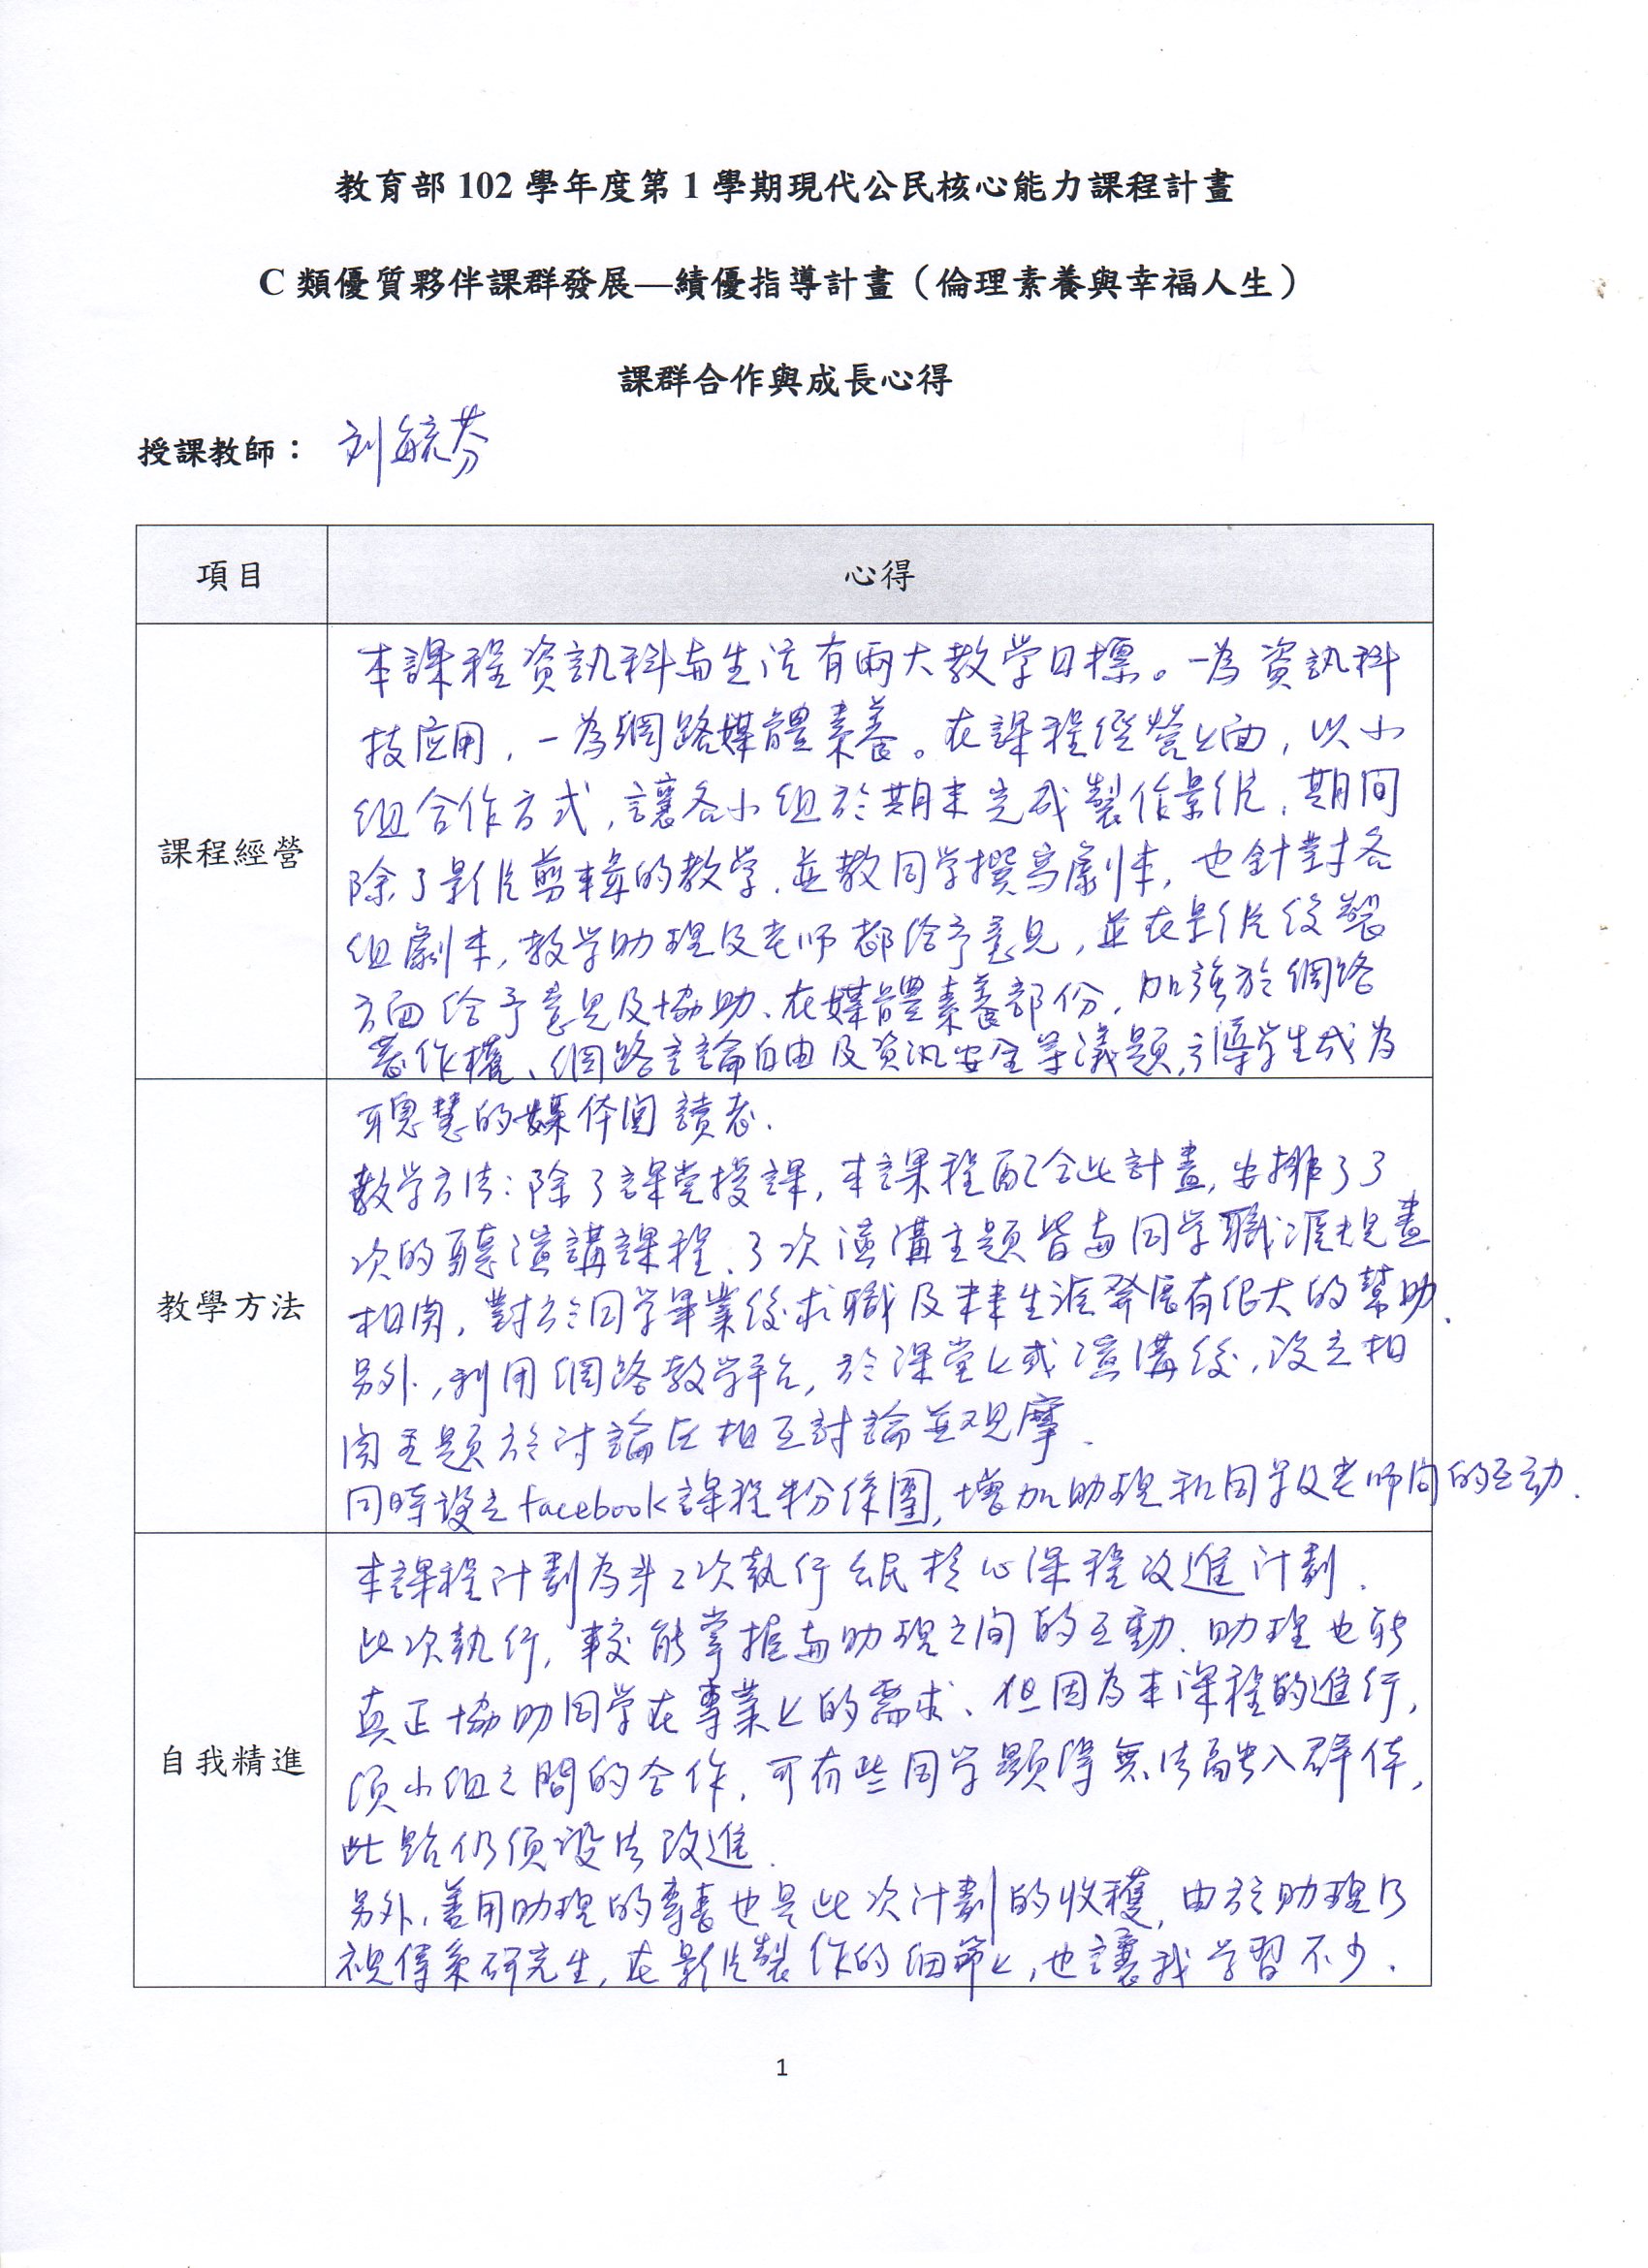 教育部 102 學年度第 1 學期現代公民核心能力課程計畫
C 類優質夥伴課群發展—績優指導計畫（倫理素養與幸福人生）
課群合作與成長心得
授課教師： 刘毓芬
項目 心得
課程經營
本課程資訊科与生活有兩大教学目標。一為資訊科
技应用，一為網路媒體素養。在課程經營上面，以小
組合作方式，讓各小組於期末完成製作影片，期间
除了影片剪輯的教学，並教同学撰寫劇本，也針對各
組劇本，教学助理及老师都给予意見，並在影片後製
方面给予意見及協助、在媒體素養部份，加強於網路
著作權、網路言論自由及資訊安全等議題，引導学生成為
聰慧的媒体閱讀者．
教學方法
教学方法：除了課堂授課，本課程配合此計畫，安排了3
次的聽演講課程、3次演講主題皆与同学職涯規畫
相関，對於同学畢業後求職及未來生涯發展有很大的幫助．
另外，利用網路教学平台，於课堂上或演講後，设立相
関主題於讨論区相互討論並观摩．
同時設立facebook課程粉絲團，增加助理和同学及老师间的互动．
自我精進
本課程计劃為第2次執行公民核心课程改進计劃．
此次執行，較能掌握与助理之间的互動．助理也能
真正協助同学在專業上的需求、但因為本课程的進行，
须小组之間的合作，可有些同学顯得無法融入群体，
此點仍须設法改進．
另外，善用助理的專長也是此次计劃的收穫，由於助理乃
視傳系研究生，在影片製作的细節上，也讓我学習不少．
1